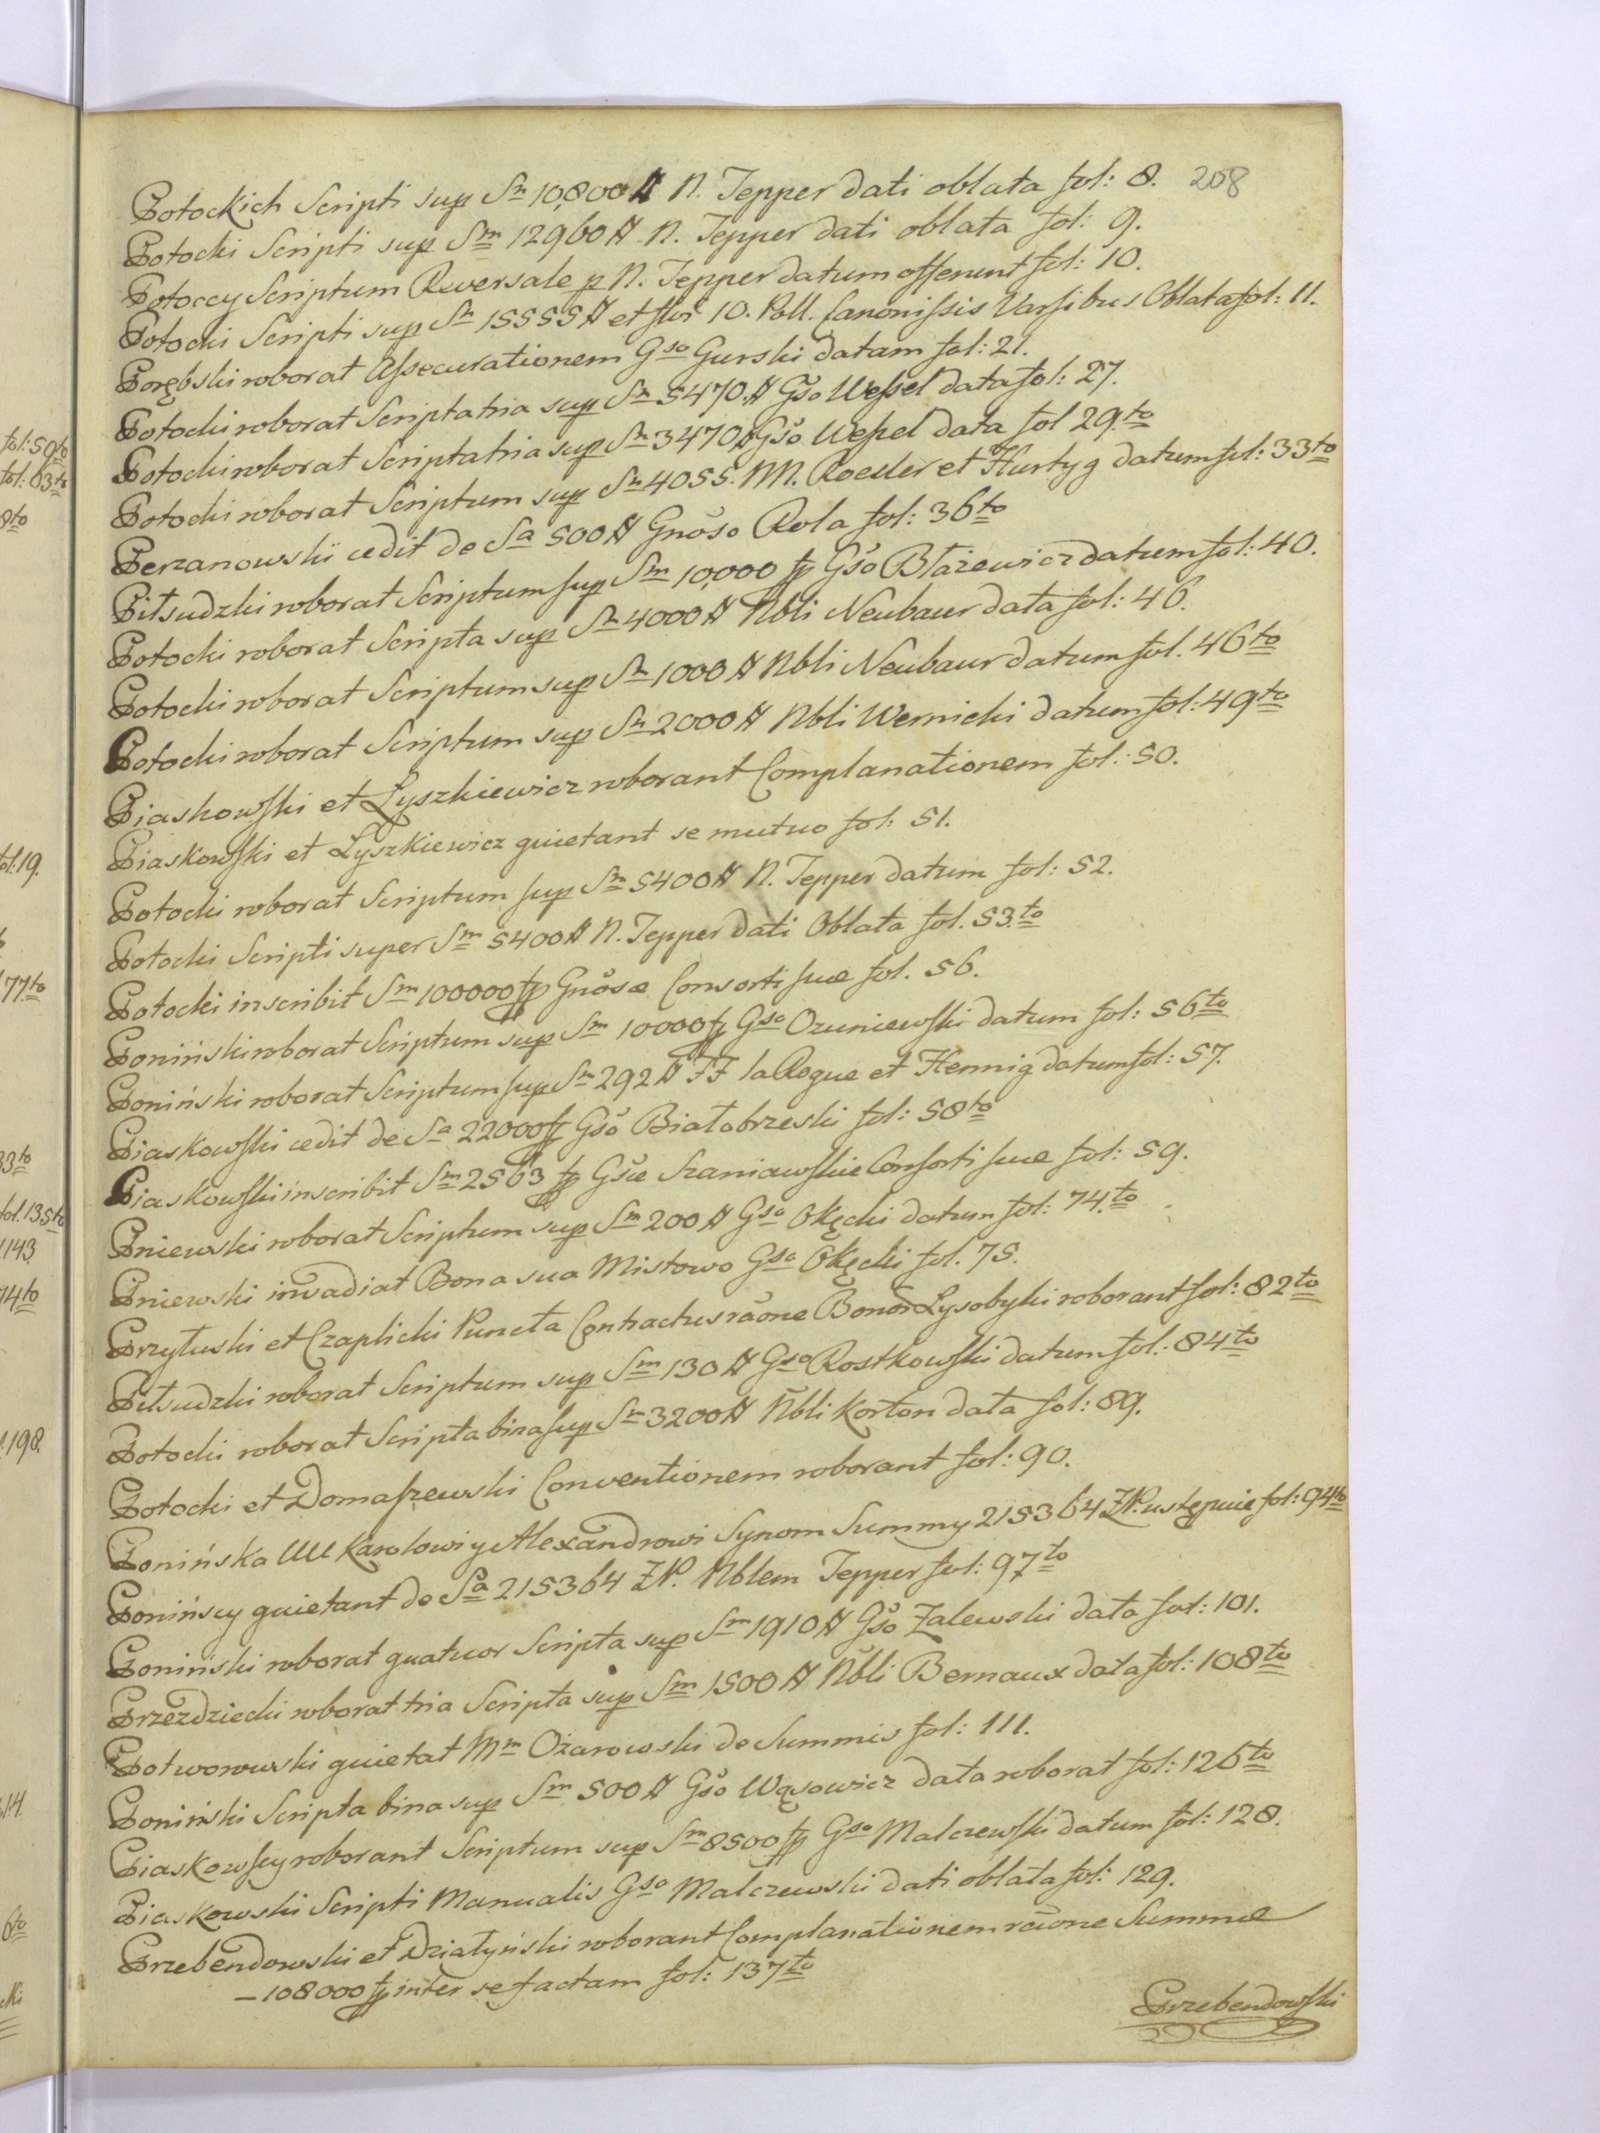 Potockich Scripti sup Sm 10,800 # N. Tepper dati oblata fol: 8. 208
Potocki Scripti sup Sm 12960 # N. Tepper dati oblata fol: 9.
Potoccy Scriptum Reversale p N. Tepper datum offerunt fol: 10.
Potocki Scripti sup Sm 15555 # et flor 10. Poll. Canonissis Varsibus Oblata fol: 11.
Porębski roborat Assecurationem Gso Gurski datam fol: 21.
Potocki roborat Scripta tria sup Sm 5470 # Gso Wessel data fol: 27.
Potocki roborat Scripta tria sup Sm 3470 # Gso Wessel data fol 29to
Potocki roborat Scriptum sup Sm 4055. NN. Roesler et Hurtyg datum fol: 33to
Perzanowski cedit de Sa 500 # Gnoso Rola fol: 36to
Piłsudzki roborat Scriptum sup Sm 10,000 fp Gso Błażewicz datum fol: 40.
Potocki roborat Scripta sup Sm 4000 # Nbli Neubaur data fol: 46.
Potocki roborat Scriptum sup Sm 1000 # Nbli Neubaur datum fol. 46to
Potocki roborat Scriptum sup Sm 2000 # Nbli Wernicki datum fol: 49to
Piaskowski et Łyszkiewicz roborant Complanationem fol: 50.
Piaskowski et Łyszkiewicz quietant se mutuo fol: 51.
Potocki roborat Scriptum sup Sm 5400 # N. Tepper datum fol: 52.
Potocki Scripti super Sm 5400 # N. Tepper dati Oblata fol. 53.to
Potocki inscribit Sm 100000 fp Gnosae Consorti suae fol. 56.
Poniński roborat Scriptum sup Sm 10000 fp Gso Ozuniewski datum fol: 56to
Poniński roborat Scriptum sup Sm 292 # FF la Rogue et Hennig datum fol: 57.
Piaskowski cedit de Sa 22000 fp Gso Białobrzeski fol: 58to
Piaskowski inscribit Sm 2563 fp Gsae Szaniawskie Consorti suae fol: 59.
Pniewski roborat Scriptum sup Sm 200 # Gso Okęcki datum fol: 74.to
Pniewski invadiat Bona sua Mistowo Gso Okęcki fol. 75.
Przyłuski et Czaplicki Puncta Contractus raone Bonor Lysobyki roborant fol: 82to
Piłsudzki roborat Scriptum sup Sm 130 # Gso Rostkowski datum fol: 84to
Potocki roborat Scripta bina sup Sm 3200 # Nbli Korton data fol: 89.
Potocki et Domaszewski Conventionem roborant fol: 90.
Ponińska UU Karolowi y Alexandrowi Synom Summy 215364 ZP. ustępuie fol: 94to
Ponińscy quietant de Sa 215364 ZP. Nblem Tepper fol: 97to
Poniński roborat quatuor Scripta sup Sm 1910 # Gso Zalewski data fol: 101.
Przezdziecki roborat tria Scripta sup Sm 1500 # Nbli Bernaux data fol: 108to
Potworowski quietat Mm Ożarowski de Summis fol: 111.
Poniński Scripta bina sup Sm 500 # Gso Wąsowicz data roborat fol: 126to
Piaskowscy roborant Scriptum sup Sm 8500 fp Gso Malczewski datum fol: 128.
Piaskowski Scripti Manualis Gso Malczewski dati oblata fol: 129.
Przebendowski et Działyński roborant Complanationem raone Summae
– 108000 fp inter se factam fol: 137to
Przebendowski
fol: 50to
fol: 83to
8to
fol: 19.
77to
33to
fol. 135to
143
74to
198.
14.
6to